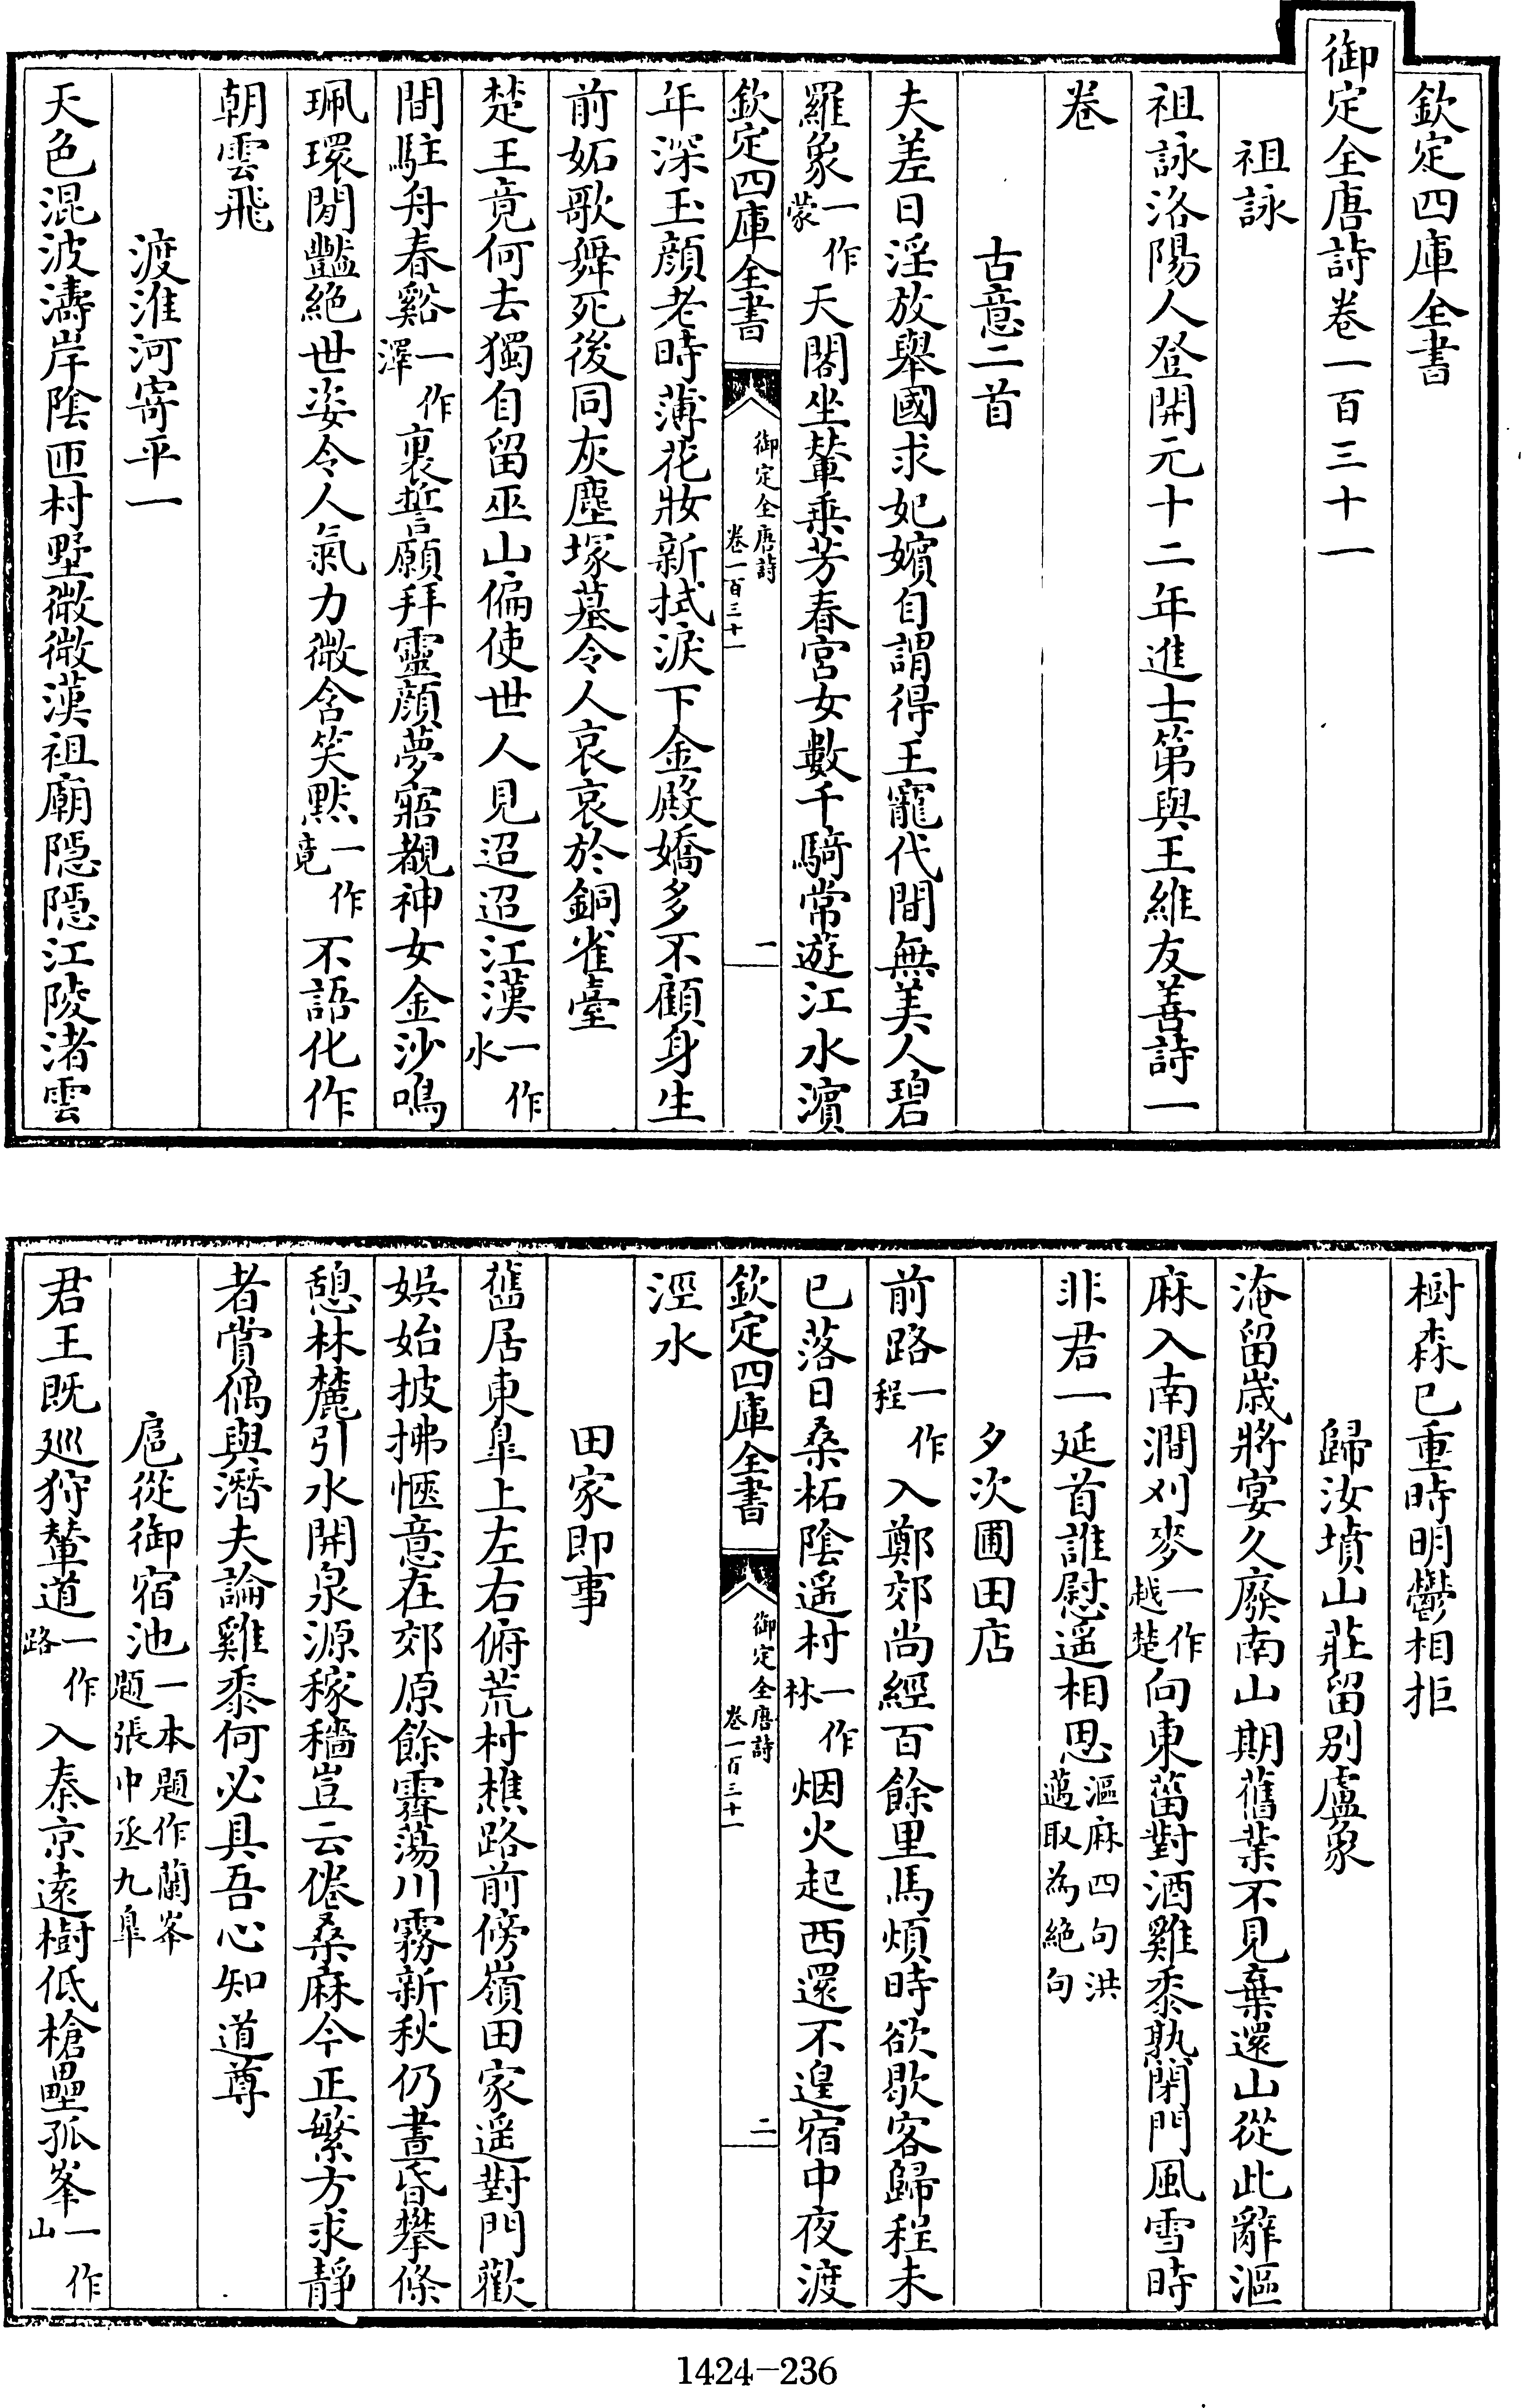 欽定四庫全書
御定全唐詩卷一百三十一
祖詠
祖詠洛陽人登開元十二年進士第與王維友善詩一
卷
古意二首
夫差日淫放舉國求妃嬪自謂得王寵代間無美人碧
羅象一作蒙天閣坐輦乗芳春宮女數千騎常遊江水濱
欽定四庫全書 御定全唐詩卷一百三十一 一
年深玉顔老時薄花妝新拭淚下金殿嬌多不顧身生
前妬歌舞死後同灰塵塚墓令人哀哀於銅雀臺
楚王竟何去獨自留巫山偏使世人見迢迢江漢一作水
間駐舟春谿一作澤裏誓願拜靈顔夢寤覩神女金沙鳴
珮環閒豔絶世姿令人氣力微含笑黙一作竟不語化作
朝雲飛
渡淮河寄平一
天色混波濤岸陰匝村墅微微漢祖廟隱隱江陵渚雲
樹森已重時明鬱相拒
歸汝墳山莊留別盧象
淹留歲將宴久廢南山期舊業不見棄還山從此辭漚
麻入南澗刈麥一作越楚向東菑對酒雞黍熟閉門風雪時
非君一延首誰慰遥相思漚麻四句洪邁取為絶句
夕次圃田店
前路一作程入鄭郊尚經百餘里馬煩時欲歇客歸程未
已落日桑柘陰遥村一作林烟火起西還不遑宿中夜渡
欽定四庫全書 御定全唐詩卷一百三十一 二
涇水
田家即事
舊居東臯上左右俯荒村樵路前傍嶺田家遥對門歡
娯始披拂愜意在郊原餘霽蕩川霧新秋仍晝昏攀條
憩林麓引水開泉源稼穡豈云倦桑麻今正繁方求靜
者賞偶與潛夫論雞黍何必具吾心知道尊
扈從御宿池一本題作蘭峯題張中丞九臯
君王既巡狩輦道一作路入秦京遠樹低槍壘孤峯一作山
1424-236